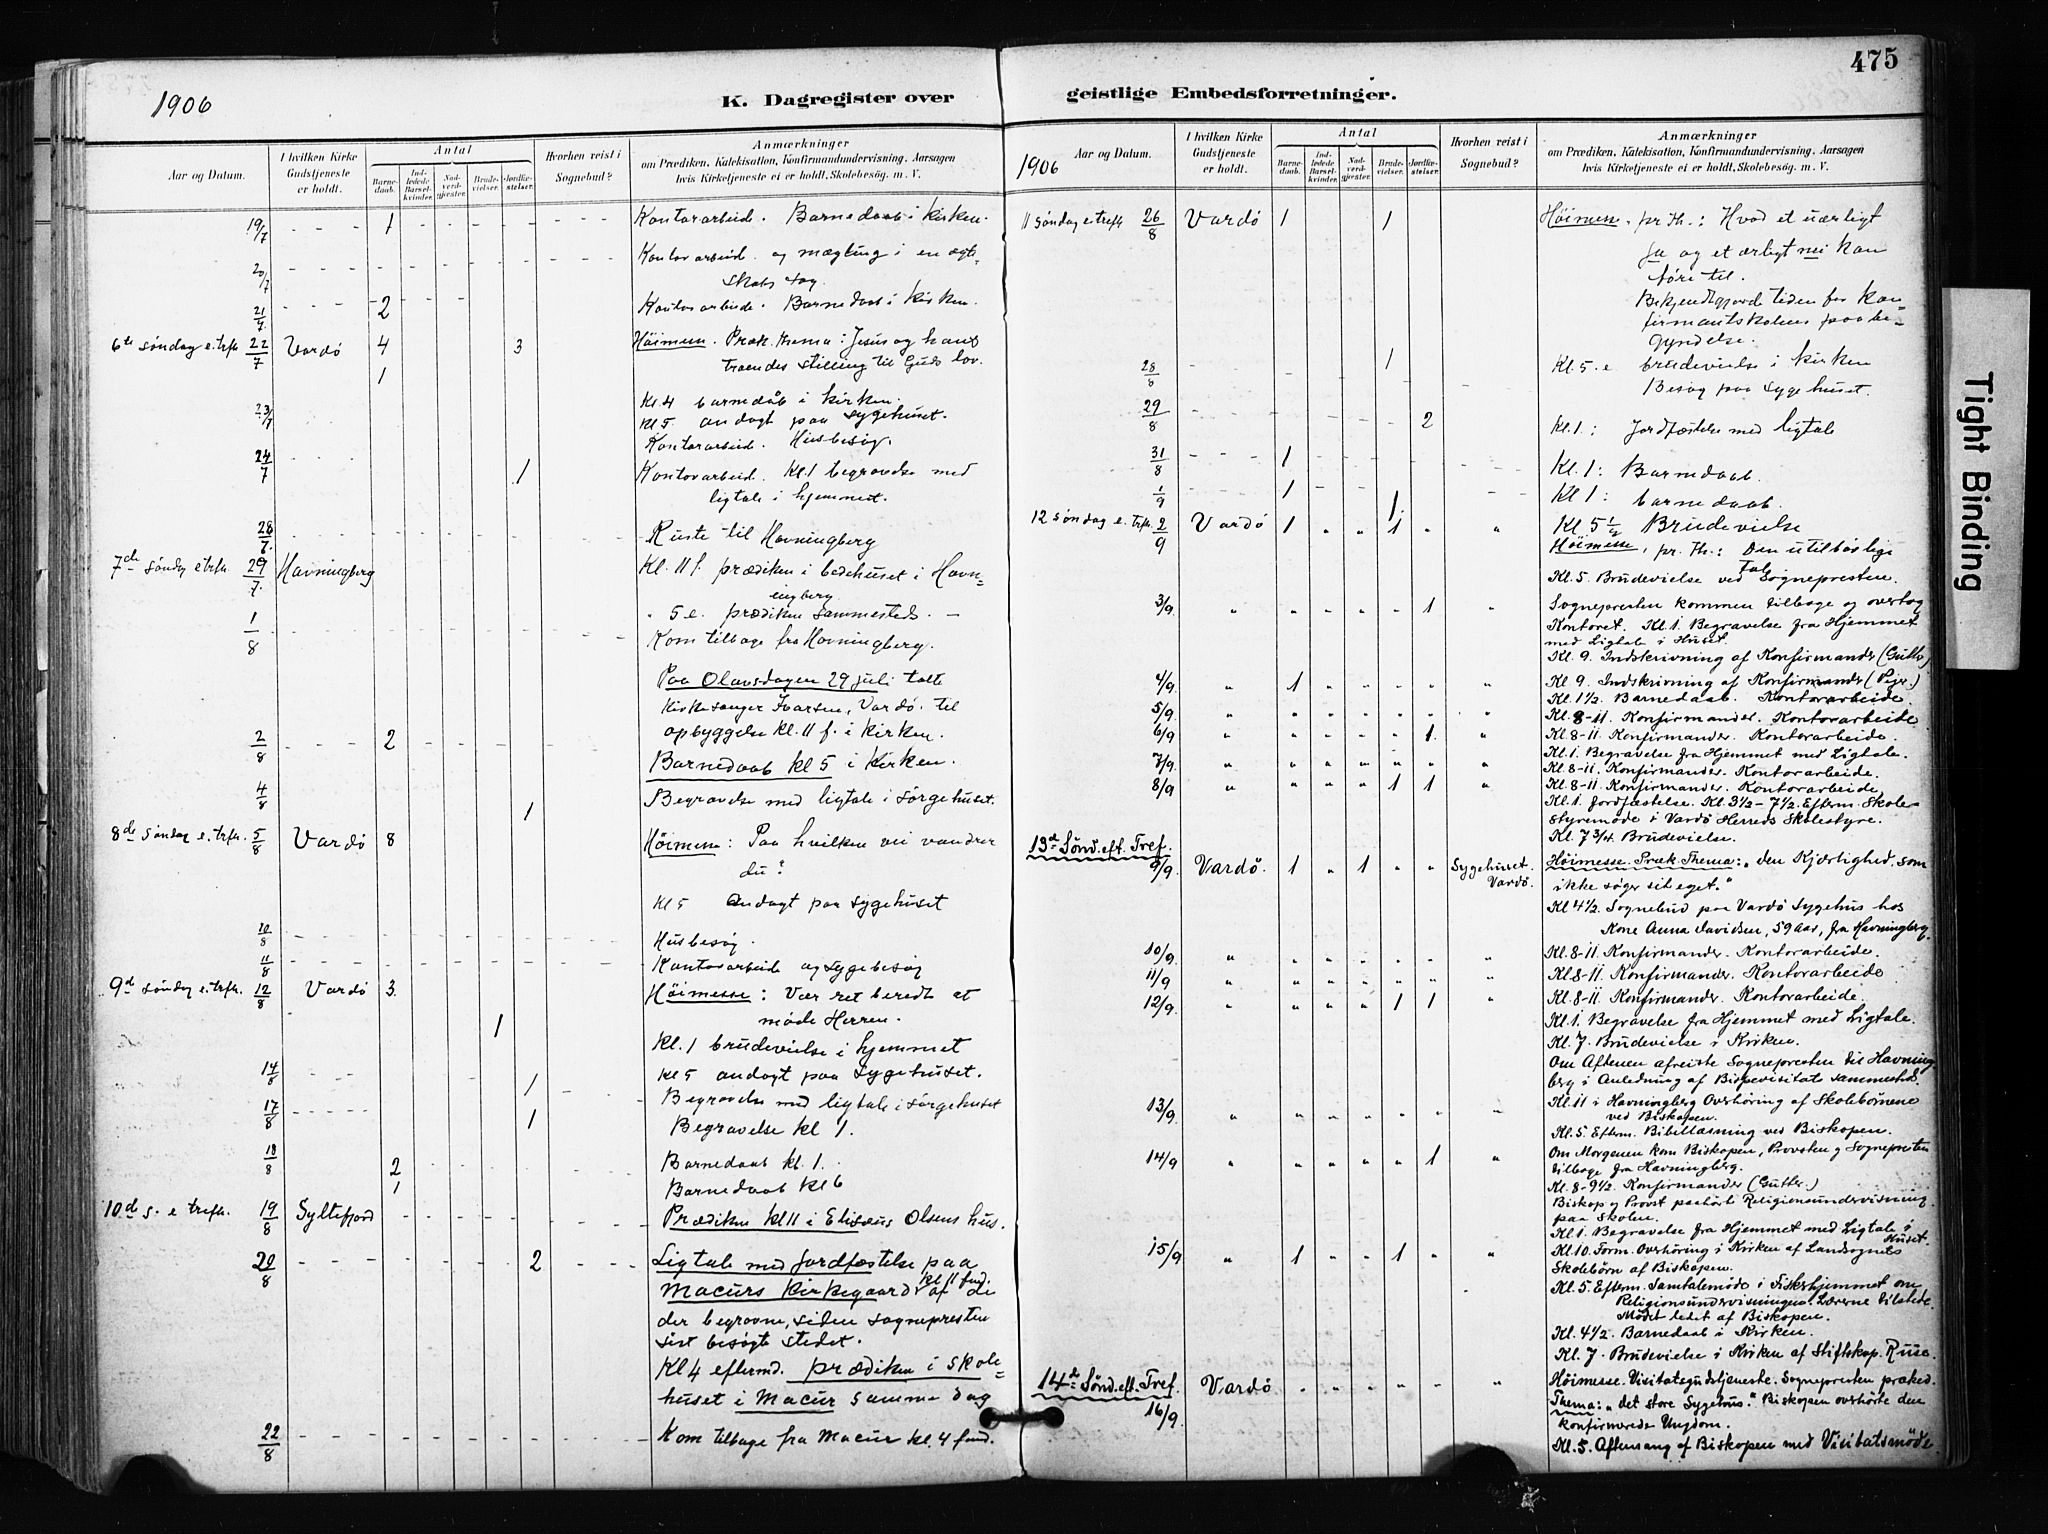 475
1906
K. Dagregister over
geistlige Embedsforretninger.
Aar og Datum.
I hvilken Kirke Gudstjeneste er holdt.
Antal
Barnedaab.
Indledede Barselkvinder.
Nadverdgjester.
Brudevielser.
Jordfæstelser.
Hvorhen reist i Sognebud?
Anmærkninger
om Prædiken, Katekisation, Konfirmandundervisning, Aarsagen
hvis Kirketjeneste ei er holdt, Skolebesøg. m. V.
19/7 1 Kontorarbeid. Barnedaab i kirken.
20/7 Kontorarbeid og mægling i en ægte-
skabs sag.
21/7 2 Kontorarbeide. Barnedaab i kirken.
6te søndag e. trefh. 22/7 Vardø 4 3 Høimesse. Præk. thema: Jesus og hans
troendes stilling til Guds lov.
1 Kl. 4 barnedåb i kirken.
Kl 5 andagt paa sygehuset.
23/7 Kontorarbeid. Husbesøg.
24/7 1 Kontorarbeid. Kl. 1 begravelse med
ligtale i hjemmet.
28/7 Reiste til Havningberg
7de søndag e. trefh. 29/7 Havningberg Kl. 11 f. prædiken i bedehuset i Havn-
ingberg
" 5 e. prædiken sammesteds. —
1/8 Kom tilbage fra Havningberg.
Paa Olavsdagen 29 juli talte
kirkesanger Ivarsen, Vardø, til
opbyggelse kl. 11 f. i kirken.
2/8 2 Barnedaab kl 5 i kirken.
4/8 1 Begravelse med ligtale i sørgehuset.
8de søndag e. trefh. 5/8 Vardø 8 Høimesse: Paa hvilken vei vandrer
du?
Kl 5 andagt paa sygehuset
10/8 Husbesøg.
11/8 Kontorarbeide og sygebesøg
9de søndag e. trefh. 12/8 Vardø 3. Høimesse: Vær ret beredt at
møde Herren.
1 Kl. 1 brudevielse i hjemmet
Kl 5 andagt paa sygehuset.
14/8 1 Begravelse med ligtale i sørgehuset
17/8 1 Begravelse kl 1.
18/8 2 Barnedaab kl. 1.
1 Barnedaab kl 6
10de s. e trefh. 19/8 Syltefjord Prædiken kl 11 i Elisæus Olsens hus.
20/8 2 Ligtale med jordfæstelse paa
Macurs kirkegaard kl 11 fmd. af de
der begravne, siden sognepresten
sist besøgte stedet.
Kl 4 eftermd. prædiken i skole-
huset i Macur samme dag
22/8 Kom tilbage fra Macur kl. 4 fmd.
1906
Aar og Datum.
I hvilken Kirke Gudstjeneste er holdt.
Antal
Barnedaab.
Indledede Barselkvinder.
Nadverdgjester.
Brudevielser.
Jordfæstelser.
Hvorhen reist i Sognebud?
Anmærkninger
om Prædiken, Katekisation, Konfirmandundervisning, Aarsagen
hvis Kirketjeneste ei er holdt, Skolebesøg. m. V.
11 søndag e trefh 26/8 Vardø 1 1 Høimesse. pr. Th.: Hvad et uærligt
ja og et ærligt nei kan
føre til.
Bekjendtgjorde tiden for kon-
firmantskolens paabe-
gyndelse.
28/8 1 Kl. 5. e brudevielse i kirken
Besøg paa sygehuset.
29/8 2 Kl. 1: Jordfæstelse med ligtale
31/8 1 Kl. 1: Barnedaab.
1/9 1 Kl 1: barnedaab.
1. Kl 5 1/2 Brudevielse
12 søndag e. trfh. 2/9 Vardø 1 " " 1 " " Høimesse, pr. Th.: Den utilbøslige
Tale
Kl. 5. Brudevielse ved Sognepresten.
3/9 " " " " " 1 " Sognepresten kommen tilbage og overtog
Kontoret. Kl. 1. Begravelse fra Hjemmet
med Ligtale i Huset.
Kl. 9. Indskrivning af Konfirmander (Gutter)
4/9. " 1 " " " " " Kl 9. Indskrivning af Konfirmander (Pger.)
Kl. 1 1/2. Barnedaab. Kontorarbeide.
5/9. " " " " " " " Kl. 8-11. Konfirmander. Kontorarbeide
6/9 " " " " " 1. " Kl 8-11. Konfirmander. Kontorarbeide.
Kl. 1. Begravelse fra Hjemmet med Ligtale.
7/9. " " " " " " " Kl. 8-11. Konfirmander. Kontorarbeide.
8/9 " " " " 1 1 " Kl. 8-11. Konfirmander. Kontorarbeide.
Kl. 1. Jordfæstelse. Kl. 3 1/2 - 7 1/2. Efterm. Skole-
styremøde i Vardø Herreds Skolestyre.
Kl. 7 3/4. Brudevielse.
13de Sønd. eft. Tref.
9/9. Vardø. 1 " 1 " " Sygehuset. Vardø. Høimesse. Præk. Thema: „den Kjærlighed, som
ikke søger sit eget."
Kl 4 1/2. Sognebud paa Vardø Sygehus hos
Kone Anna Davidsen, 59 aar, fra Havningberg.
10/9. " " " " " " " Kl. 8-11. Konfirmander. Kontorarbeide.
11/9 " " " " " " " Kl. 8-11. Konfirmander. Kontorarbeide
12/9. " " " " 1 1 " Kl. 8-11. Konfirmander. Kontorarbeide.
Kl. 1. Begravelse fra Hjemmet med Ligtale.
Kl. 7. Brudevielse i Kirken.
Om Aftenen afreiste Sognepresten til Havning-
berg i Anledning af Bispevisitats sammested.
13/9. " " " " " " " Kl. 11 i Havningberg Overhøring af Skolebørnene
ved Biskopen.
Kl. 5. Efterm. Bibellæsning ved Biskopen.
14/9. " " " " " 1 " Om Morgenen kom Biskopen, Provsten og Sognepresten
tilbage fra Havningberg.
Kl. 8-9 1/2. Konfirmander (Gutter.)
Biskop og Provst paahørte Religionsundervisning
paa Skolen.
Kl. 1. Begravelse fra Hjemmet med Ligtale i
Huset.
15/9 " 1 " " 1 " " Kl. 10. Form. Overhøring i Kirken af Landsognets
Skolebørn af Biskopen.
Kl. 5. Efterm. Samtalemøde i Fiskerhjemmet om
Religionsundervisningen. Lærerne tilstede.
Mødet ledet af Biskopen.
Kl. 4 1/2. Barnedaab i Kirken.
Kl. 7. Brudevielse i Kirken af Stiftskap. Ruse.
14de Sønd. eft. Tref.
16/9. Vardø " " " " " " Høimesse. Visitatsgudstjeneste. Sognepresten præked.
Thema: „det store Sygehus." Biskopen overhørte den
konfirmerede Ungdom.
Kl. 5. Aftensang af Biskopen med Visitatsmøde.
Tight Binding